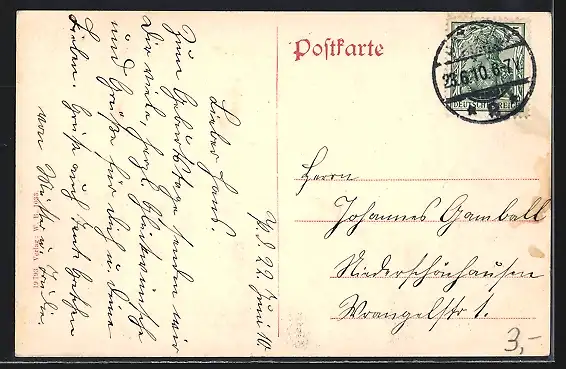 Postkarte
23.6.10.6-7V
DEUTSCHES REICH
P.d. 22. Juni 10.
Lieber Hans.
Zum Geburtstage senden wir
Dir viele herzl. Glückwünsche
und Grüße für Dich u. Deine
Lieben. Grüße auch Tante
von Mutter u.
Herrn
Johannes Gamball
Niederschönhausen
Wrangelstr 1.
3,-